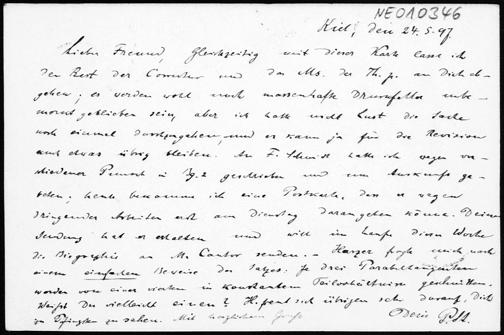 NE010346
Kiel, den 24.5.97
Lieber Freund, Gleichzeitig mit dieser Karte lasse ich
den Rest der Correctur und das Ms. der Th. p. an Dich ab-
gehen; es werden wohl noch massenhafte Druckfehler unbe-
merkt geblieben sein, aber ich hatte nicht Lust die Sache
noch einmal durchzugehen, und es kann ja für die Revision
auch etwas übrig bleiben. An F. Schmidt hatte ich wegen ver-
schiedener Puncte in geschrieben und um Auskunft ge-
beten; heute bekomme ich eine Postkarte, dass er wegen
dringender Arbeiten erst am Dienstag darangehen könne. Deine
Sendung hat er erhalten und will im Laufe dieser Woche
die Biographie an M. Cantor senden. – Harzer fragt mich nach
einem einfachen Beweise des Satzes: Je drei Parabeltangenten
werden von einer vierten in konstantem Teilverhältnisse geschnitten.
Weisst Du vielleicht einen? H. freut sich übrigens sehr darauf, Dich
zu Pfingsten zu sehen. Mit herzlichem Gruss Dein